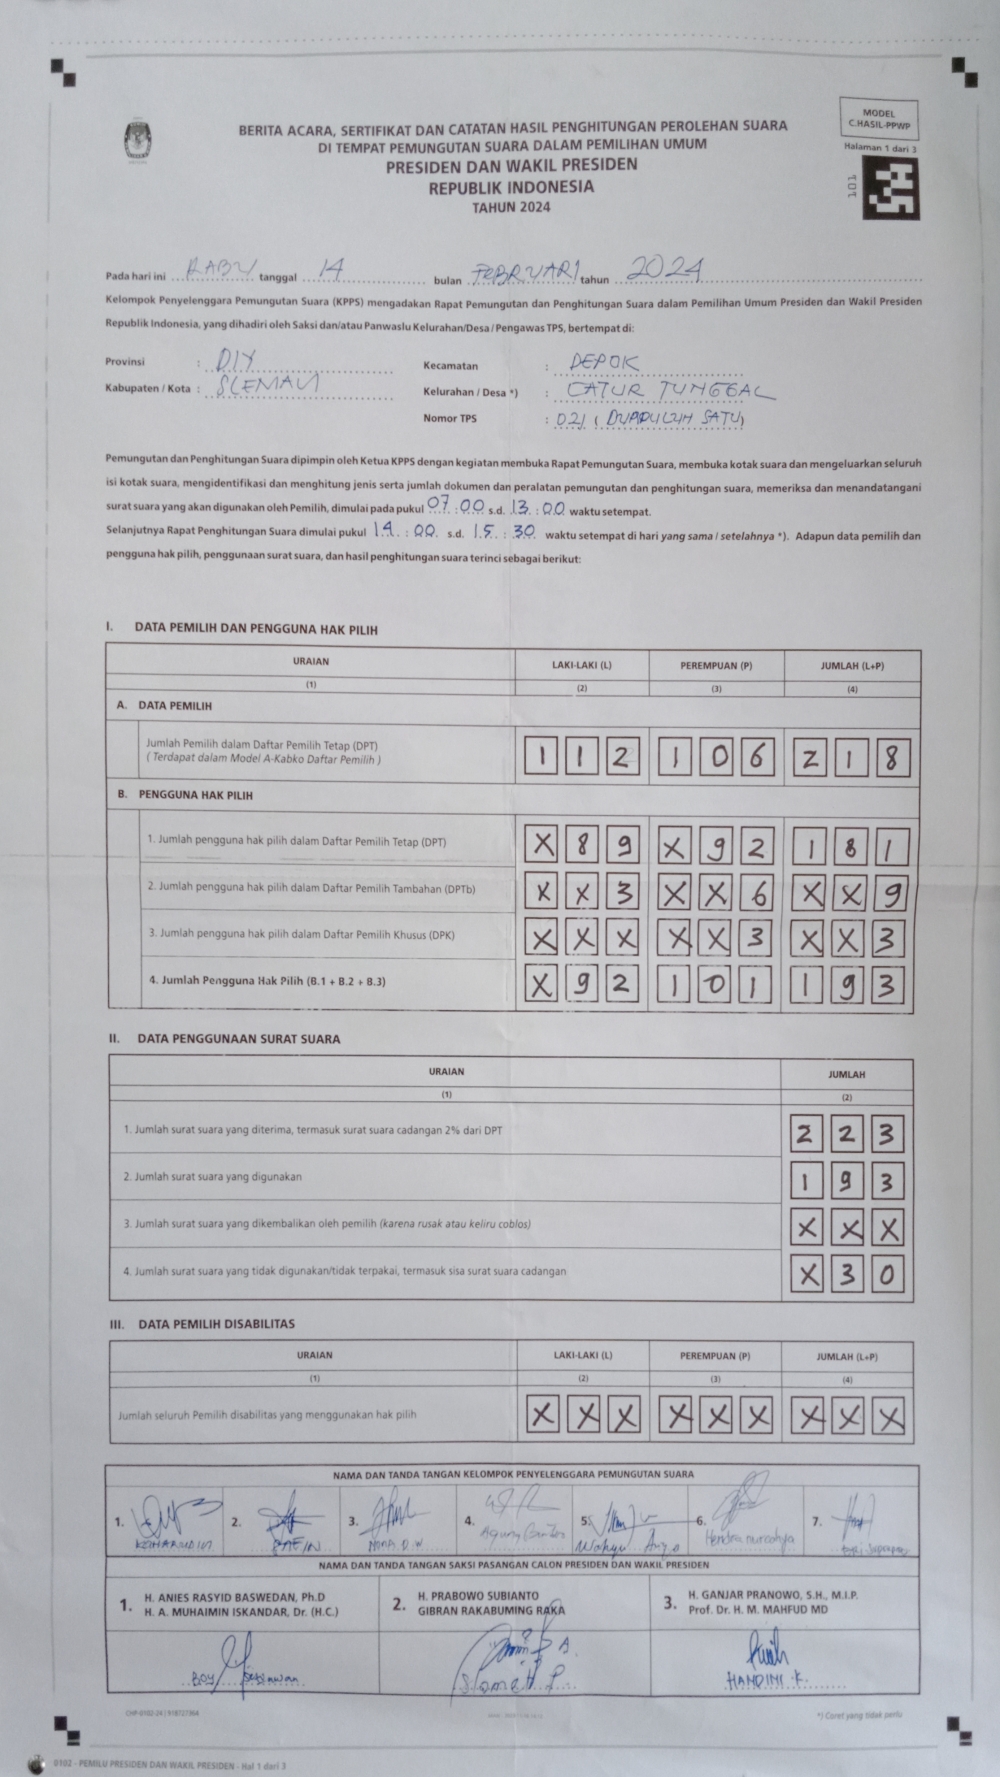 MODEL
C.HASIL-PPWP
Halaman 1 dari 3
101
BERITA ACARA, SERTIFIKAT DAN CATATAN HASIL PENGHITUNGAN PEROLEHAN SUARA
DI TEMPAT PEMUNGUTAN SUARA DALAM PEMILIHAN UMUM
PRESIDEN DAN WAKIL PRESIDEN
REPUBLIK INDONESIA
TAHUN 2024
Pada hari ini RABU tanggal 14 bulan FEBRUARI tahun 2024
Kelompok Penyelenggara Pemungutan Suara (KPPS) mengadakan Rapat Pemungutan dan Penghitungan Suara dalam Pemilihan Umum Presiden dan Wakil Presiden
Republik Indonesia, yang dihadiri oleh Saksi dan/atau Panwaslu Kelurahan/Desa / Pengawas TPS, bertempat di:
Provinsi : DIY Kecamatan : DEPOK
Kabupaten / Kota : SLEMAN Kelurahan / Desa *) : CATUR TUNGGAL
Nomor TPS : 021 ( DUAPULUH SATU)
Pemungutan dan Penghitungan Suara dipimpin oleh Ketua KPPS dengan kegiatan membuka Rapat Pemungutan Suara, membuka kotak suara dan mengeluarkan seluruh
isi kotak suara, mengidentifikasi dan menghitung jenis serta jumlah dokumen dan peralatan pemungutan dan penghitungan suara, memeriksa dan menandatangani
surat suara yang akan digunakan oleh Pemilih, dimulai pada pukul 07:00 s.d. 13:00 waktu setempat.
Selanjutnya Rapat Penghitungan Suara dimulai pukul 14:00 s.d. 15:30 waktu setempat di hari yang sama / setelahnya *). Adapun data pemilih dan
pengguna hak pilih, penggunaan surat suara, dan hasil penghitungan suara terinci sebagai berikut:
I. DATA PEMILIH DAN PENGGUNA HAK PILIH
URAIAN LAKI-LAKI (L) PEREMPUAN (P) JUMLAH (L+P)
(1) (2) (3) (4)
A. DATA PEMILIH
Jumlah Pemilih dalam Daftar Pemilih Tetap (DPT)
( Terdapat dalam Model A-Kabko Daftar Pemilih )
1 1 2 1 0 6 2 1 8
B. PENGGUNA HAK PILIH
1. Jumlah pengguna hak pilih dalam Daftar Pemilih Tetap (DPT) X 8 9 X 9 2 1 8 1
2. Jumlah pengguna hak pilih dalam Daftar Pemilih Tambahan (DPTb) X X 3 X X 6 X X 9
3. Jumlah pengguna hak pilih dalam Daftar Pemilih Khusus (DPK) X X X X X 3 X X 3
4. Jumlah Pengguna Hak Pilih (B.1 + B.2 + B.3) X 9 2 1 0 1 1 9 3
II. DATA PENGGUNAAN SURAT SUARA
URAIAN JUMLAH
(1) (2)
1. Jumlah surat suara yang diterima, termasuk surat suara cadangan 2% dari DPT 2 2 3
2. Jumlah surat suara yang digunakan 1 9 3
3. Jumlah surat suara yang dikembalikan oleh pemilih (karena rusak atau keliru coblos) X X X
4. Jumlah surat suara yang tidak digunakan/tidak terpakai, termasuk sisa surat suara cadangan X 3 0
III. DATA PEMILIH DISABILITAS
URAIAN LAKI-LAKI (L) PEREMPUAN (P) JUMLAH (L+P)
(1) (2) (3) (4)
Jumlah seluruh Pemilih disabilitas yang menggunakan hak pilih X X X X X X X X X
NAMA DAN TANDA TANGAN KELOMPOK PENYELENGGARA PEMUNGUTAN SUARA
1. 2. 3. 4. 5. 6. 7.
KOMARUDIN NONA D.W Agung Wahyu Hendra nurcahya
NAMA DAN TANDA TANGAN SAKSI PASANGAN CALON PRESIDEN DAN WAKIL PRESIDEN
1. H. ANIES RASYID BASWEDAN, Ph.D
H. A. MUHAIMIN ISKANDAR, Dr. (H.C.)
2. H. PRABOWO SUBIANTO
GIBRAN RAKABUMING RAKA
3. H. GANJAR PRANOWO, S.H., M.I.P.
Prof. Dr. H. M. MAHFUD MD
BOY Setiawan Slamet P. HANDINI K.
*) Coret yang tidak perlu
0102 - PEMILU PRESIDEN DAN WAKIL PRESIDEN - Hal 1 dari 3